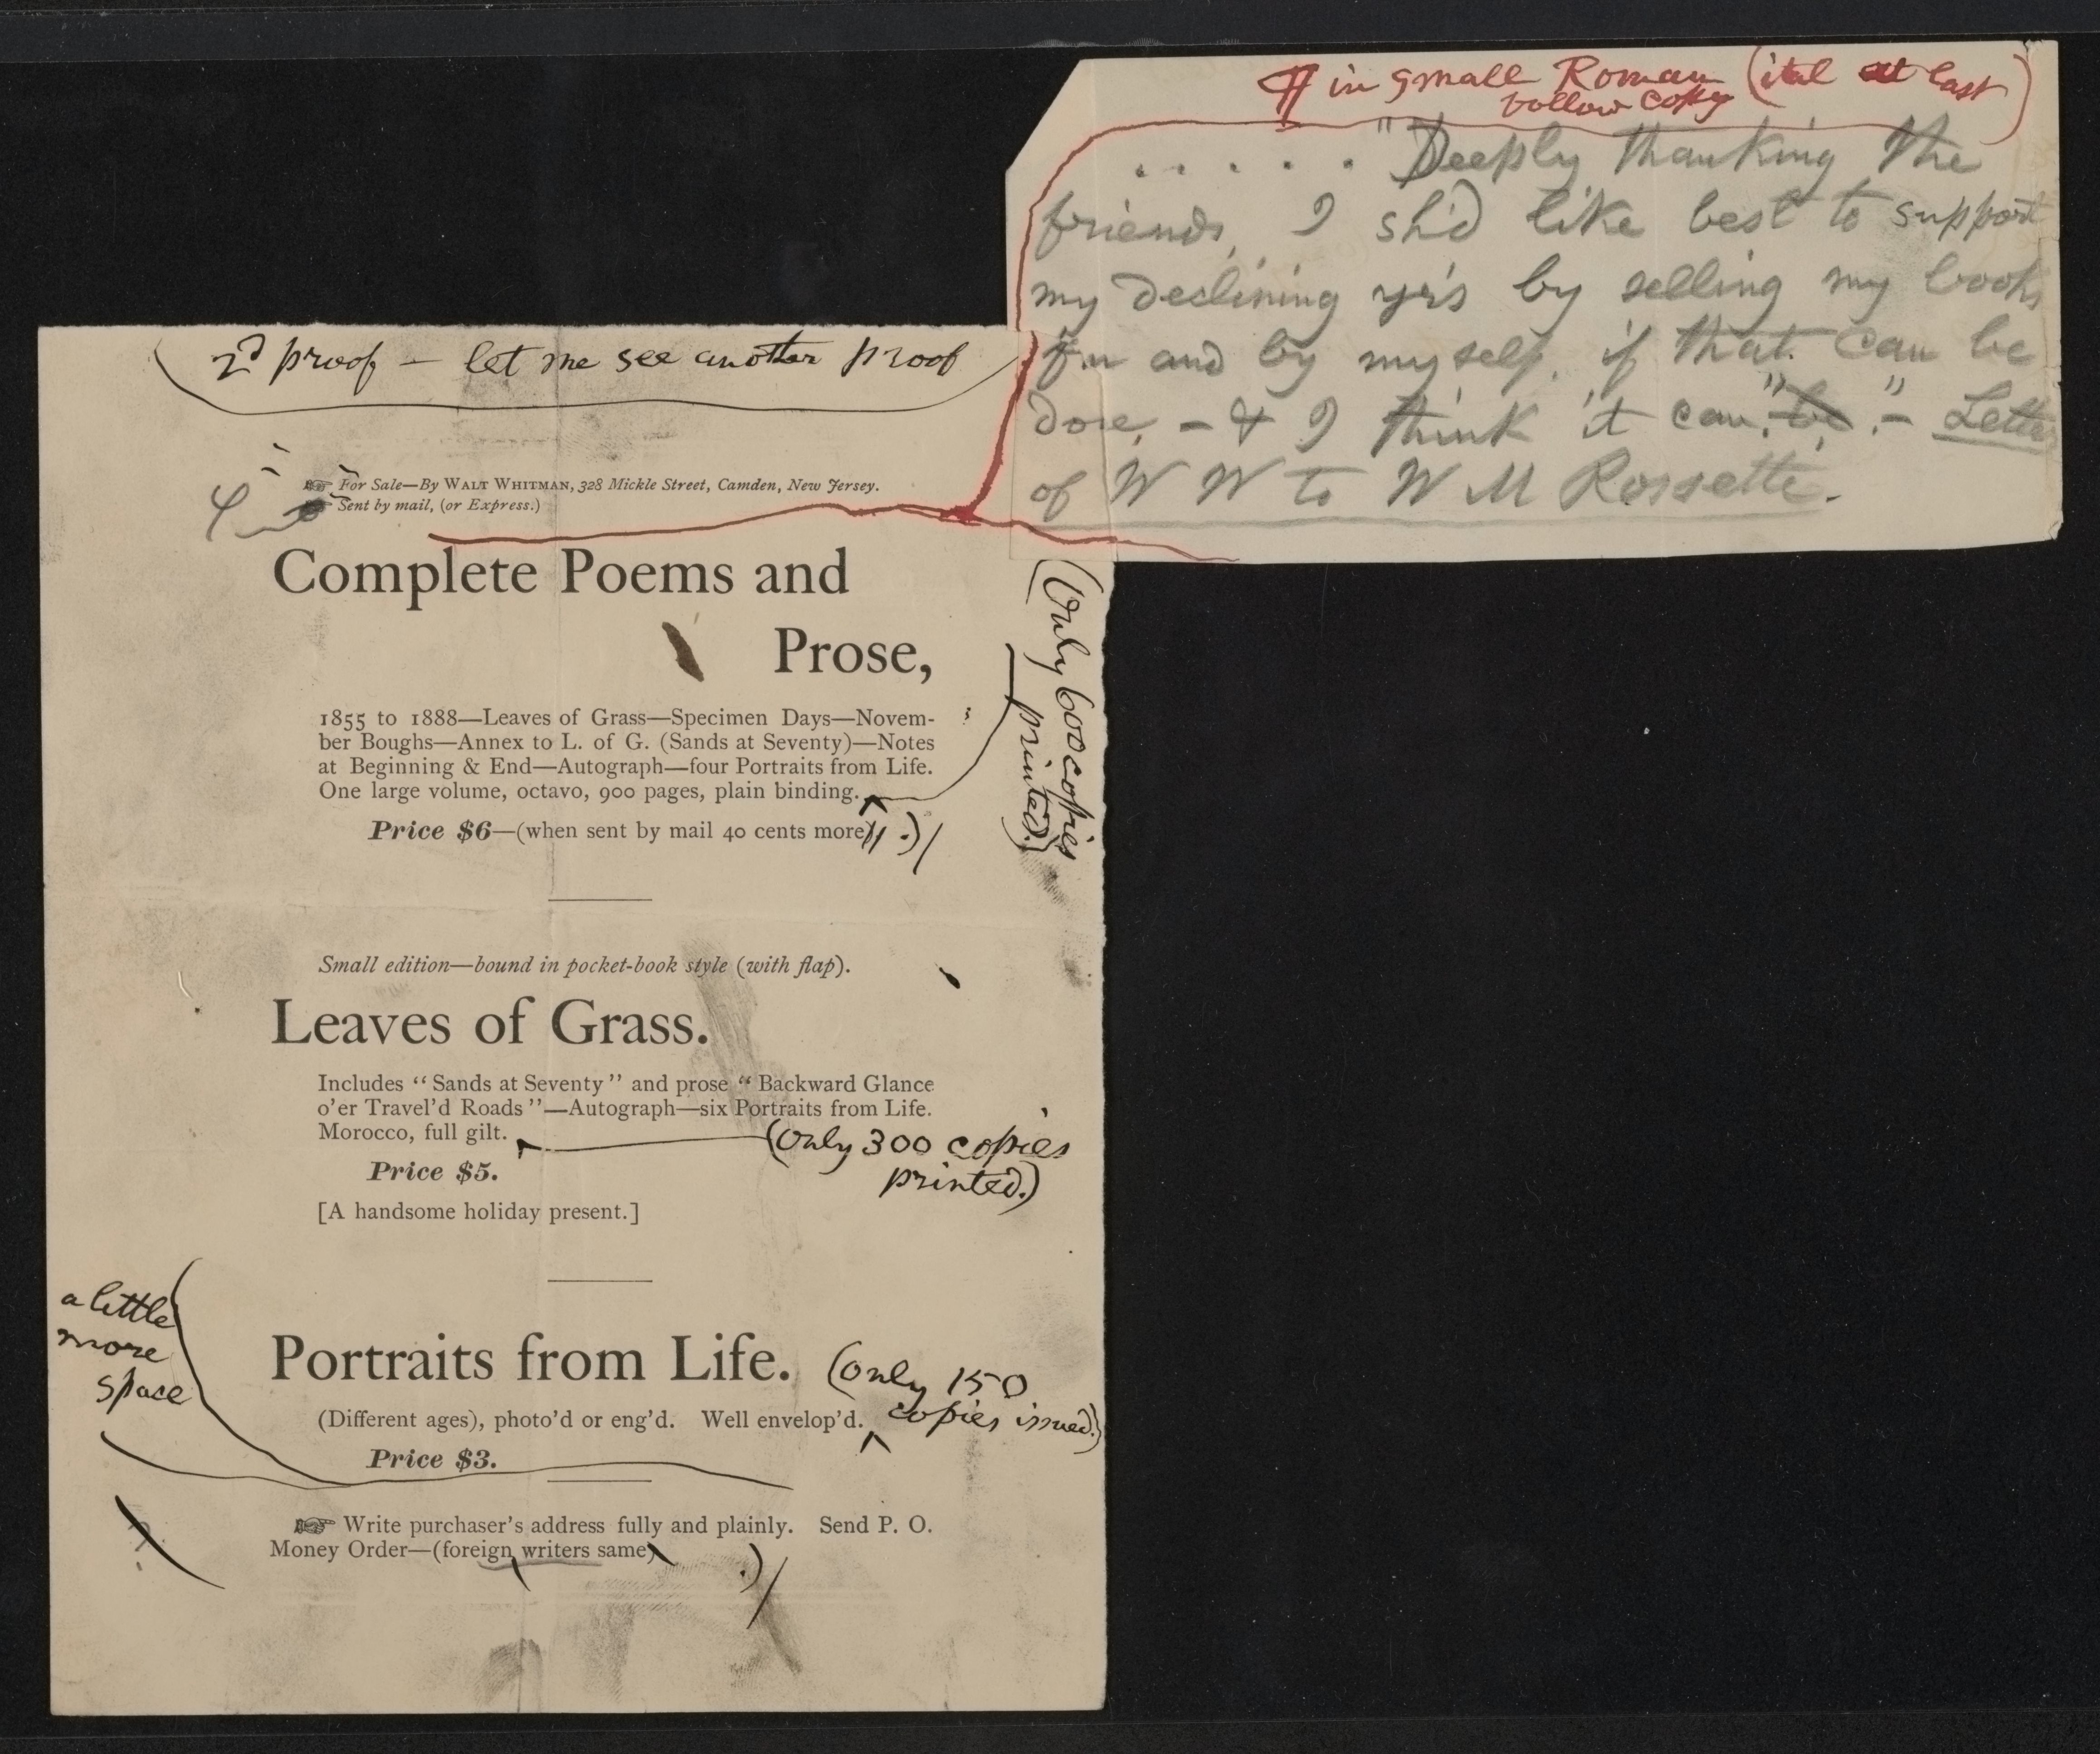 ¶ in small Roman (ital at last)
follow copy
. . . . . "Deeply thanking the
friends, I sh'd like best to support
my declining y'rs by selling my books
for and by myself, if that can be
done, – & I think it can." be." – Letter
of W W to W M Rossetti.
2d proof – let me see another proof
☞ For Sale—By WALT WHITMAN, 328 Mickle Street, Camden, New Jersey.
☞ Sent by mail, (or Express.)
Complete Poems and
Prose,
1855 to 1888—Leaves of Grass—Specimen Days—Novem-
ber Boughs—Annex to L. of G. (Sands at Seventy)—Notes
at Beginning & End—Autograph—four Portraits from Life.
One large volume, octavo, 900 pages, plain binding.
(Only 600 copies
printed.)
Price $6—(when sent by mail 40 cents more) .)/
Small edition—bound in pocket-book style (with flap).
Leaves of Grass.
Includes "Sands at Seventy" and prose "Backward Glance
o'er Travel'd Roads"—Autograph—six Portraits from Life.
Morocco, full gilt.
(Only 300 copies
printed.)
Price $5.
[A handsome holiday present.]
a little
more
space
Portraits from Life.
(only 150
copies issued.)
(Different ages), photo'd or eng'd. Well envelop'd.
Price $3.
☞ Write purchaser's address fully and plainly. Send P. O.
Money Order—(foreign writers same) .)/